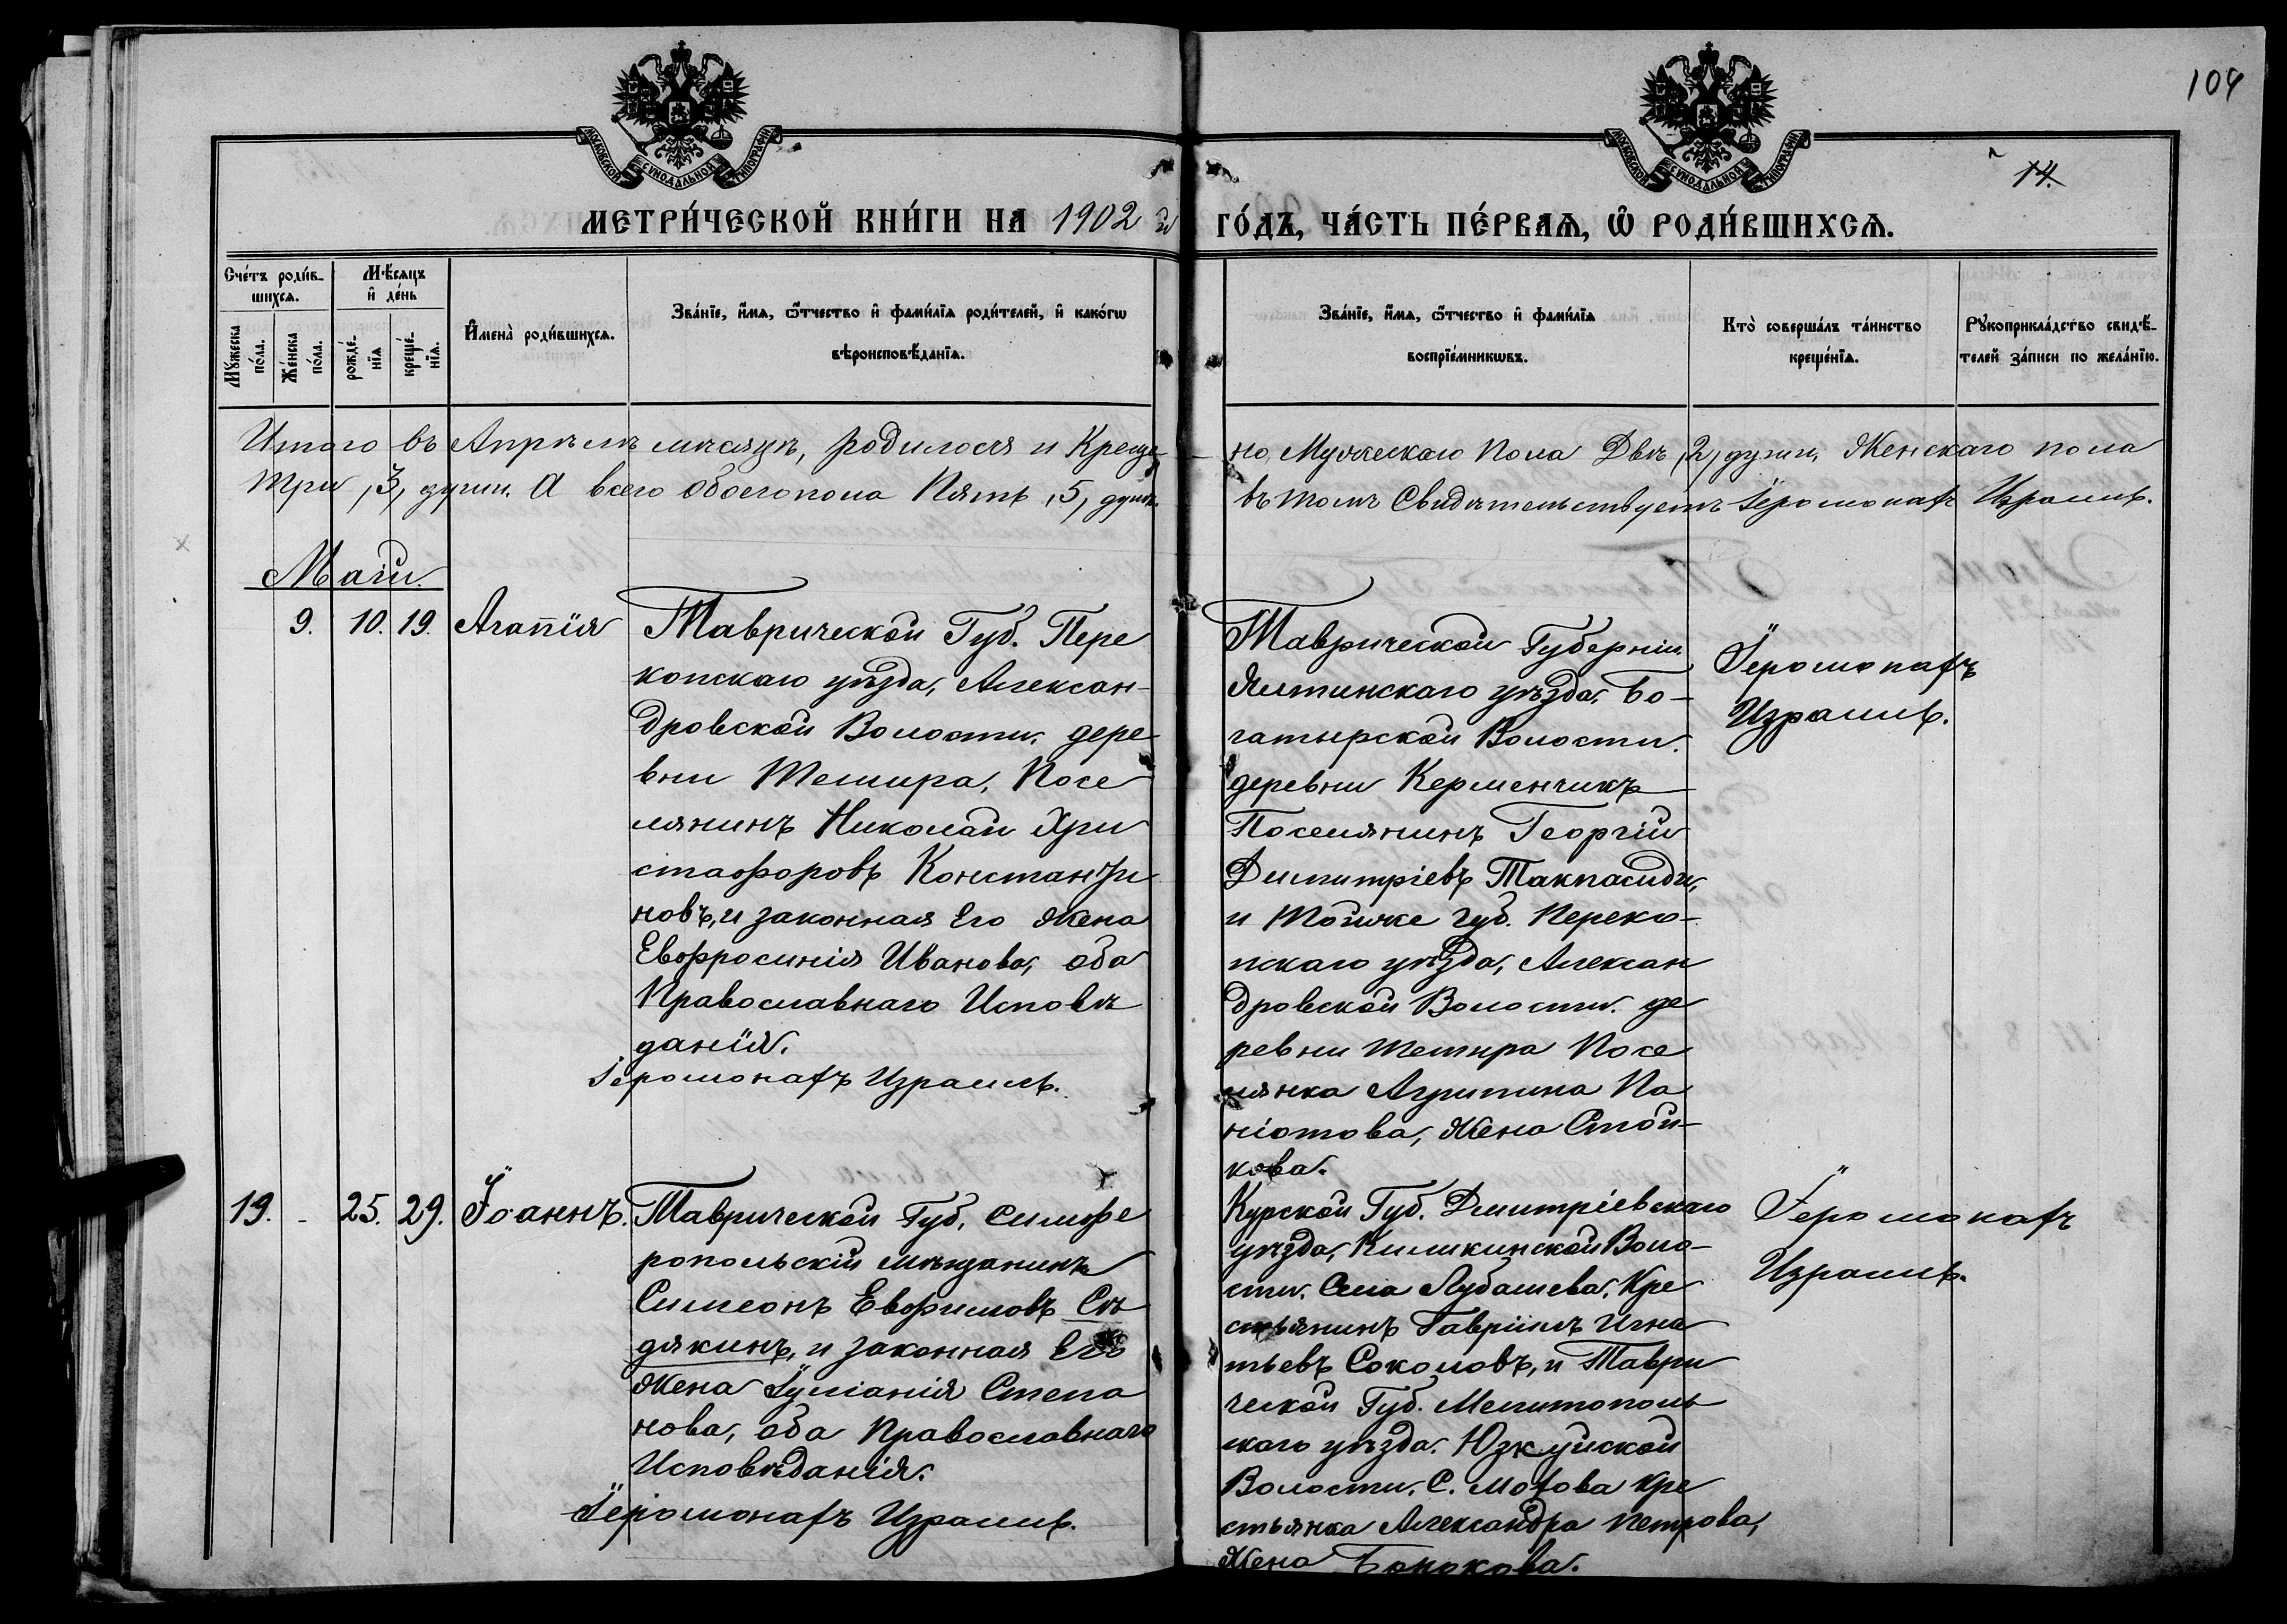 104
14.
МОСКОВСКОЙ СѴНОДАЛЬНОЙ ТИПОГРАФІИ
МОСКОВСКОЙ СѴНОДАЛЬНОЙ ТИПОГРАФІИ
МЕТРИ́ЧЕСКОЙ КНИ́ГИ НА 1902 й
ГО́ДЪ, ЧА́СТЬ ПЕ́РВАѦ, Ѡ҆ РОДИ́ВШИХСѦ.
Сче́тъ роди́в-
шихсѧ.
Мꙋ́жеска по́ла.
Же́нска по́ла.
Мѣ́сѧцъ
и҆ де́нь
рожде́-
нїѧ
креще́-
нїѧ.
И҆мена̀ роди́вшихсѧ.
Зва́нїе, и҆́мѧ, ѻ҆́тчество и҆ фами́лїѧ роди́телей, и҆ како́гѡ
вѣроисповѣ́данїѧ.
Зва́нїе, и҆́мѧ, ѻ҆́тчество и҆ фами́лїѧ
воспрїе́мникѡвъ.
Кто̀ соверша́лъ та́инство
креще́нїѧ.
Рꙋкоприкла́дство свидѣ́-
телей за́писи по жела́нїю.
Итого въ Апрѣлѣ мѣсяцѣ, родилося и Креще
но, Мужескаго Пола Двѣ, 2, души, Женскаго пола
Три, 3, души. А всего обоего пола Пять, 5, душъ.
въ томъ Свидѣтельствуетъ Іеромонахъ Израиль.
Маій.
9. 10. 19. Агапія
Таврической Губ. Пере
копскаго уѣзда, Алексан-
дровской Волости, дере
вни Тешира, Посе
лянинъ Николай Хри
стофоровъ Константи
новъ, и законная Его Жена
Евфросинія Иванова, оба
Православнаго Исповѣ
данія.
Іеромонахъ Израиль.
Таврической Губерніи
Ялтинскаго уѣзда, Бо-
гатырской Волости.
деревни Керменчикъ
Поселянинъ Георгій
Димитріевъ Такпасиди,
и Тойже губ. Переко-
пскаго уѣзда, Алексан
дровской Волости. де
ревни Тешира Посе
лянка Агрипина Па
ніотова, Жена Стой-
кова.
Іеромонахъ
Израиль.
19. - 25. 29. Іоаннъ.
Таврической Губ. Симфе
ропольскій мѣщанинъ
Симеонъ Евфимовъ Сѣ
дякинъ, и законная Его
Жена Іуліанія Степа
нова, оба Православнаго
Исповѣданія.
Іеромонахъ Израиль.
Курской Губ. Дмитріевскаго
уѣзда, Киликинской Воло-
сти. Села Лубашева, Кре
стьянинъ Гавріилъ Игна
тьевъ Соколовъ, и Таври
ческой Губ. Мелитополь
скаго уѣзда. Юзкуйской
Волости. С. Мохова Кре
стьянка Александра Петрова,
Жена
Іеромонахъ
Израиль.